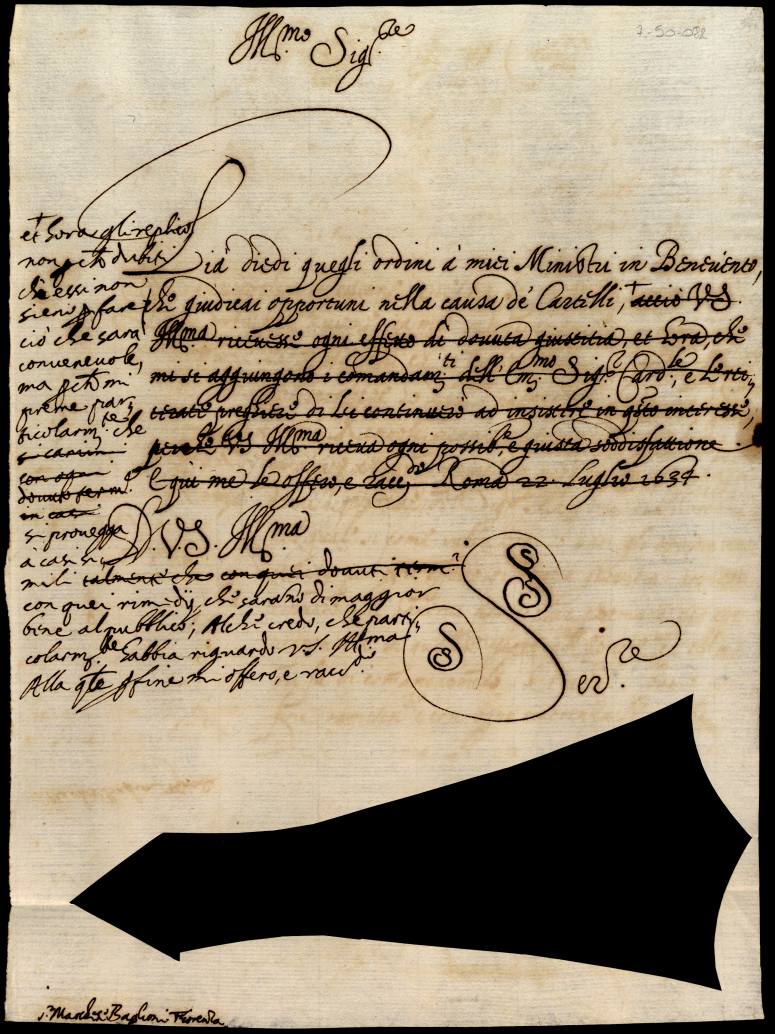 Ill.mo Sig.re
7-50-082
Già diedi quegli ordini à miei Ministri in Benevento,
che giudicai opportuni nella causa de' Castelli, acciò VS
Ill.ma ricevesse ogni effetto di dovuta giustitia, et hora, che
mi si aggiungono i comandam.ti dell' Em.mo Sig.r Card.le, e l'orti,
terate preghiere di lei continuerò ad insistere in q.sto interesse,
perche VS Ill.ma riceva ogni possib.le, e giusta soddisfattione
E qui me le offero, e racc.do Roma 22 Luglio 1634.
D. V.S. Ill.ma
et hora gli replico
non dubiti
ch'essi non
sieno p fare
ciò che sarà
convenevole,
ma p.che mi
preme par,
ticolarm.te che
con ogni
dovuto term.
in casi
si provegga
à casi si,
mili talmente che con quei dovuti term.i
con quei rimedij, che sarano di maggior
bene al pubblico; Al che credo, che parti,
colarm.te habbia riguardo V.S. Ill.ma
Alla q.le p fine mi offero, e racc.do
Ser.re
S.r March.se Baglioni Fiorenza